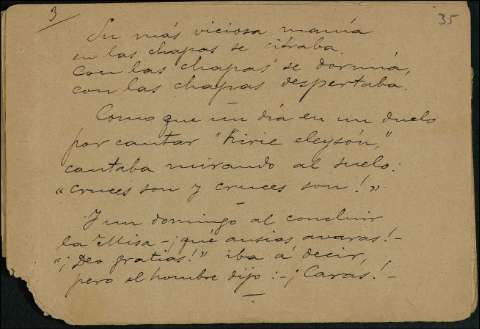 3
35
Su más viciosa manía
en las chapas se
Con las chapas se dormía,
con las chapas despertaba.
Como que un día en un duelo
por cantar "Kirie eleysón,"
cantaba mirando al suelo:
"Cruces son y cruces son!"
Y un domingo al concluir
la Misa -¡qué ansias, avaras!-
"¡Deo gratias!" iba á decir,
pero el hombre dijo:-¡Caras!-